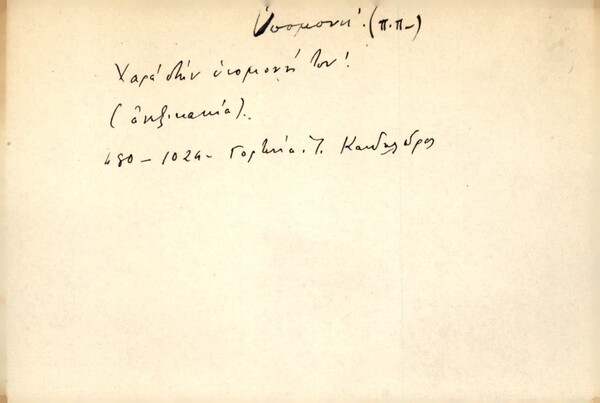 Ὑπομονή. (π.π.)
Χαρά στήν ὑπομονή του!
(ἀνεξικακία).
480 – 1024 – Γορτυνία. Τ. Κανδηλῶρος